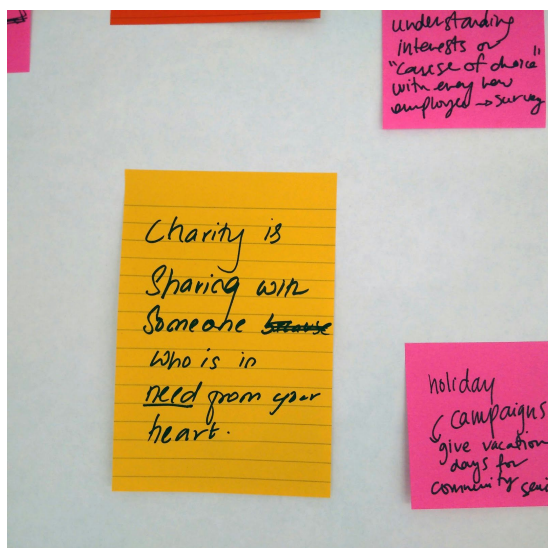 understanding
interests or
"cause of choice"
with every new
employee → survey
Charity is
Sharing with
Someone
who is in
need from your
heart.
holiday
campaigns
give vacation
days for
community